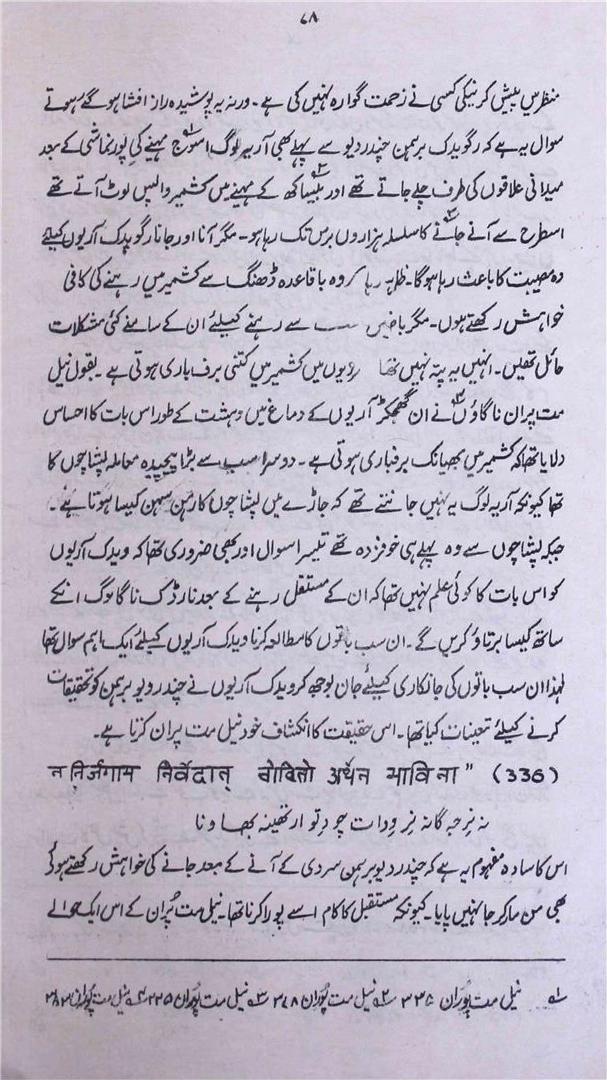 ۶۸
منظر میں پیش کرنیکی کسی نے زحمت گوارہ نہیں کی ہے۔ ورنہ یہ پوشیدہ راز افشا ہو گئے ہوتے
سوال یہ ہے کہ رگویدک برہمن چندر دیو سے پہلے بھی آریہ لوگ اسوج مہینے کی پورنماشی کے بعد
میدانی علاقوں کی طرف چلے جاتے تھے اور بیساکھ کے مہینے میں کشمیر واپس لوٹ آتے تھے
اسطرح سے آنے جانے کا سلسلہ ہزاروں برس تک رہا ہو۔ مگر آنا اور جانا رگویدک آریوں کیلئے
دہ مصیبت کا باعث رہا ہوگا۔ ظاہر رہا کہ وہ باقاعدہ ڈھنگ سے کشمیر میں رہنے کی کافی
خواہش رکھتے ہوں۔ مگر سے رہنے کیلئے ان کے سامنے کئی مشکلات
حائل تھیں۔ انہیں یہ پتہ نہیں تھا میں کشمیر میں کتنی برف باری ہوتی ہے۔ بقول نیل
مت پران ناگاؤں نے ان گھمکڑ آریوں کے دماغ میں دہشت کے طور اس بات کا احساس
دلایا تھا کہ کشمیر میں بھیانک برفباری ہوتی ہے۔ دوسرا سب سے بڑا پیچیدہ معاملہ پشاچوں کا
تھا کیونکہ آریہ لوگ یہ نہیں جانتے تھے کہ جاڑے میں پشاچوں کا رہن سہن کیسا ہوتا ہے۔
جبکہ پشاچوں سے وہ پہلے ہی خوفزدہ تھے تیسرا سوال اور بھی ضروری تھا کہ ویدک آریوں
کو اس بات کا کوئی علم نہیں تھا کہ ان کے مستقل رہنے کے بعد نارڈک ناگا لوگ انکے
ساتھ کیسا برتاؤ کریں گے۔ ان سب باتوں کا مطالعہ کرنا ویدک آریوں کیلئے ایک اہم سوال تھا
لہذا ان سب باتوں کی جانکاری کیلئے جان بوجھ کر ویدک آریوں نے چندر دیو برہمن کو تحقیقات
کرنے کیلئے تعینات کیا تھا۔ اس حقیقت کا انکشاف خود نیل مت پران کرتا ہے۔
न निर्जगाम निर्वेदात् चोदितो अर्थेन भाविना" (336)
نہ نرجگامہ نرودات چودتو ارتھینہ بھاونا
اس کا سادہ مفہوم یہ ہے کہ چندر دیو برہمن سردی کے آنے کے بعد جانے کی خواہش رکھتے ہوئے
بھی من مار کر جا نہیں پایا۔ کیونکہ مستقبل کا کام اسے پورا کرنا تھا۔ نیل مت پُران کے اس ایک حوالے
۱؎ نیل مت پوران ۳۳۵ ۲؎ نیل مت پوران ۳۷۸ ۳؎ نیل مت پوران ۲۲۵ ۴؎ نیل مت پوران ۳۸۲